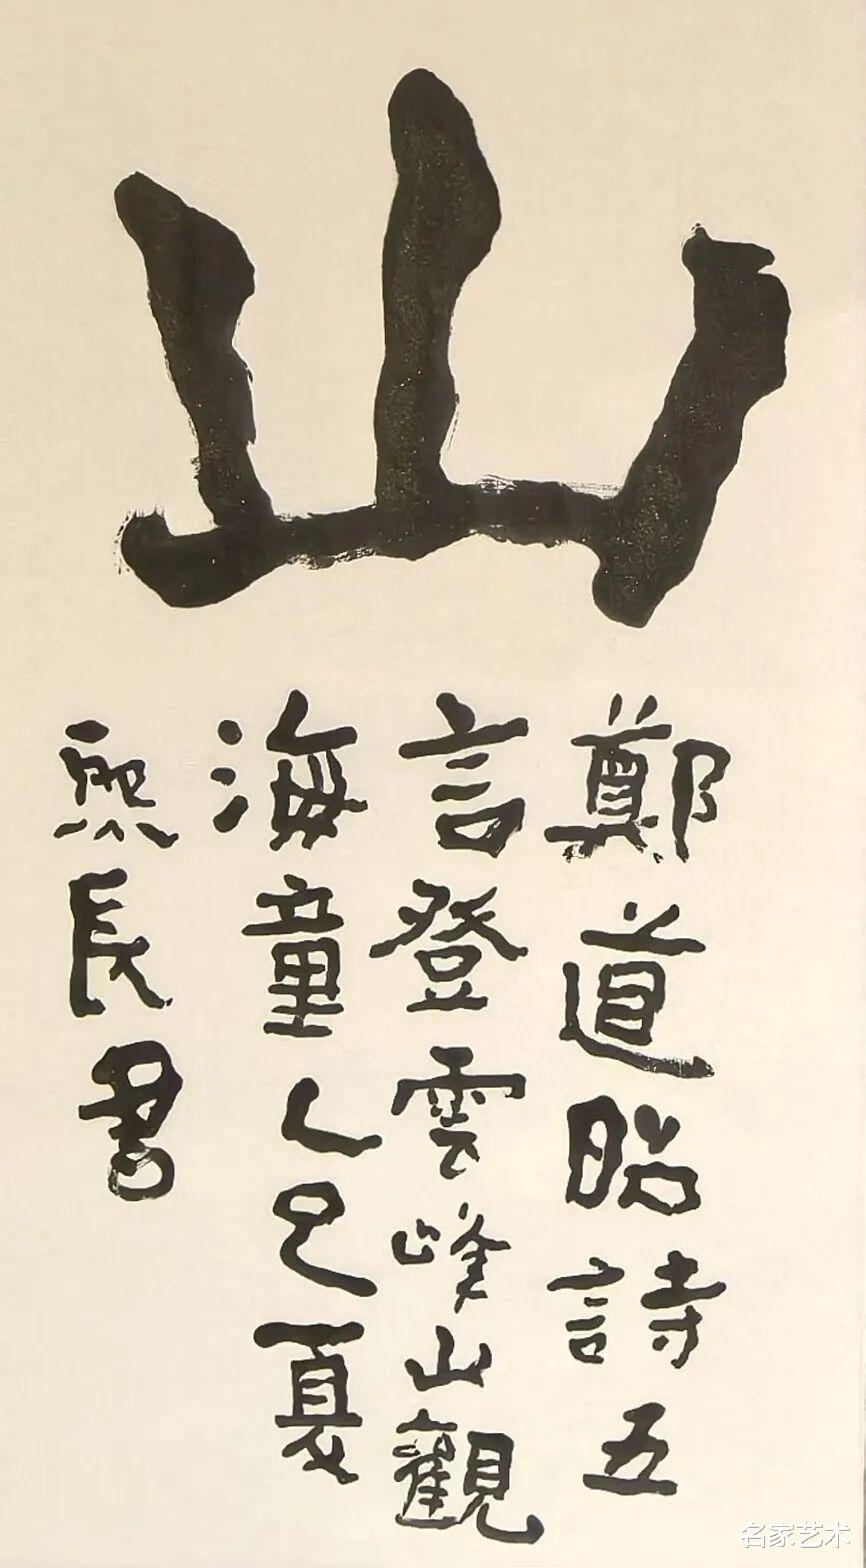 山
鄭道昭詩五
言登雲峰山觀
海童乙巳夏
熙長書
名家艺术